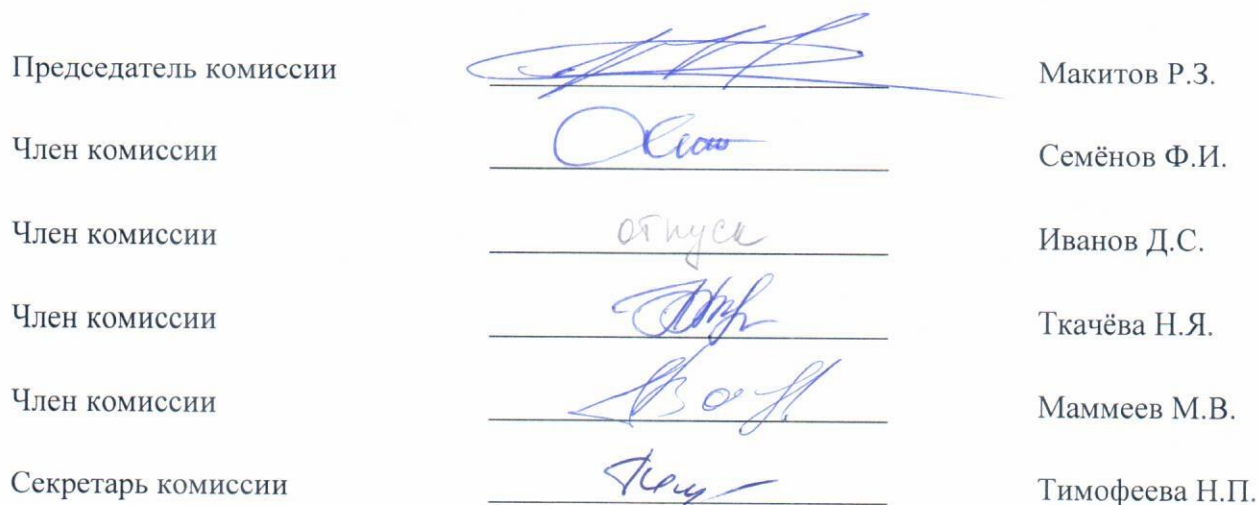 Председатель комиссии Макитов Р.З.
Член комиссии Семёнов Ф.И.
Член комиссии отпуск Иванов Д.С.
Член комиссии Ткачёва Н.Я.
Член комиссии Маммеев М.В.
Секретарь комиссии Тимофеева Н.П.